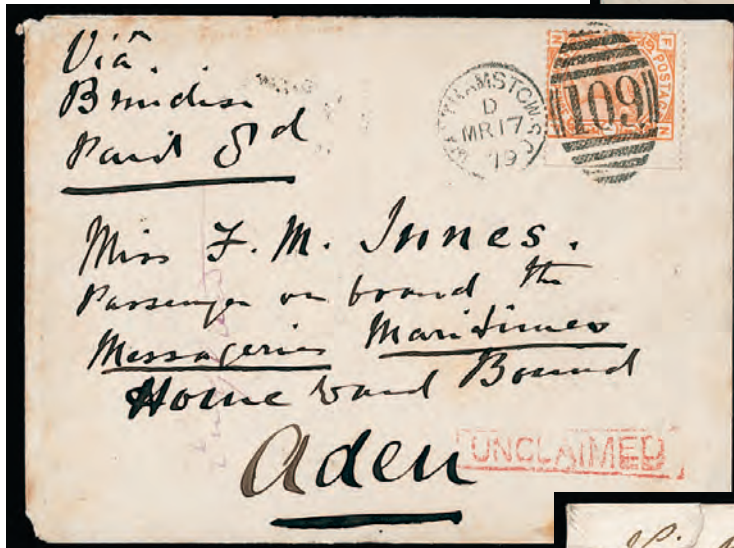 Viâ.
Brindisi
Paid 8d
WALTHAMSTOW.S.O
D
MR 17
79
109
POSTAGE
F
N
N
Miss F. M. Innes.
Passenger on board the
Messageries Maritimes
Homeward Bound
Aden
UNCLAIMED